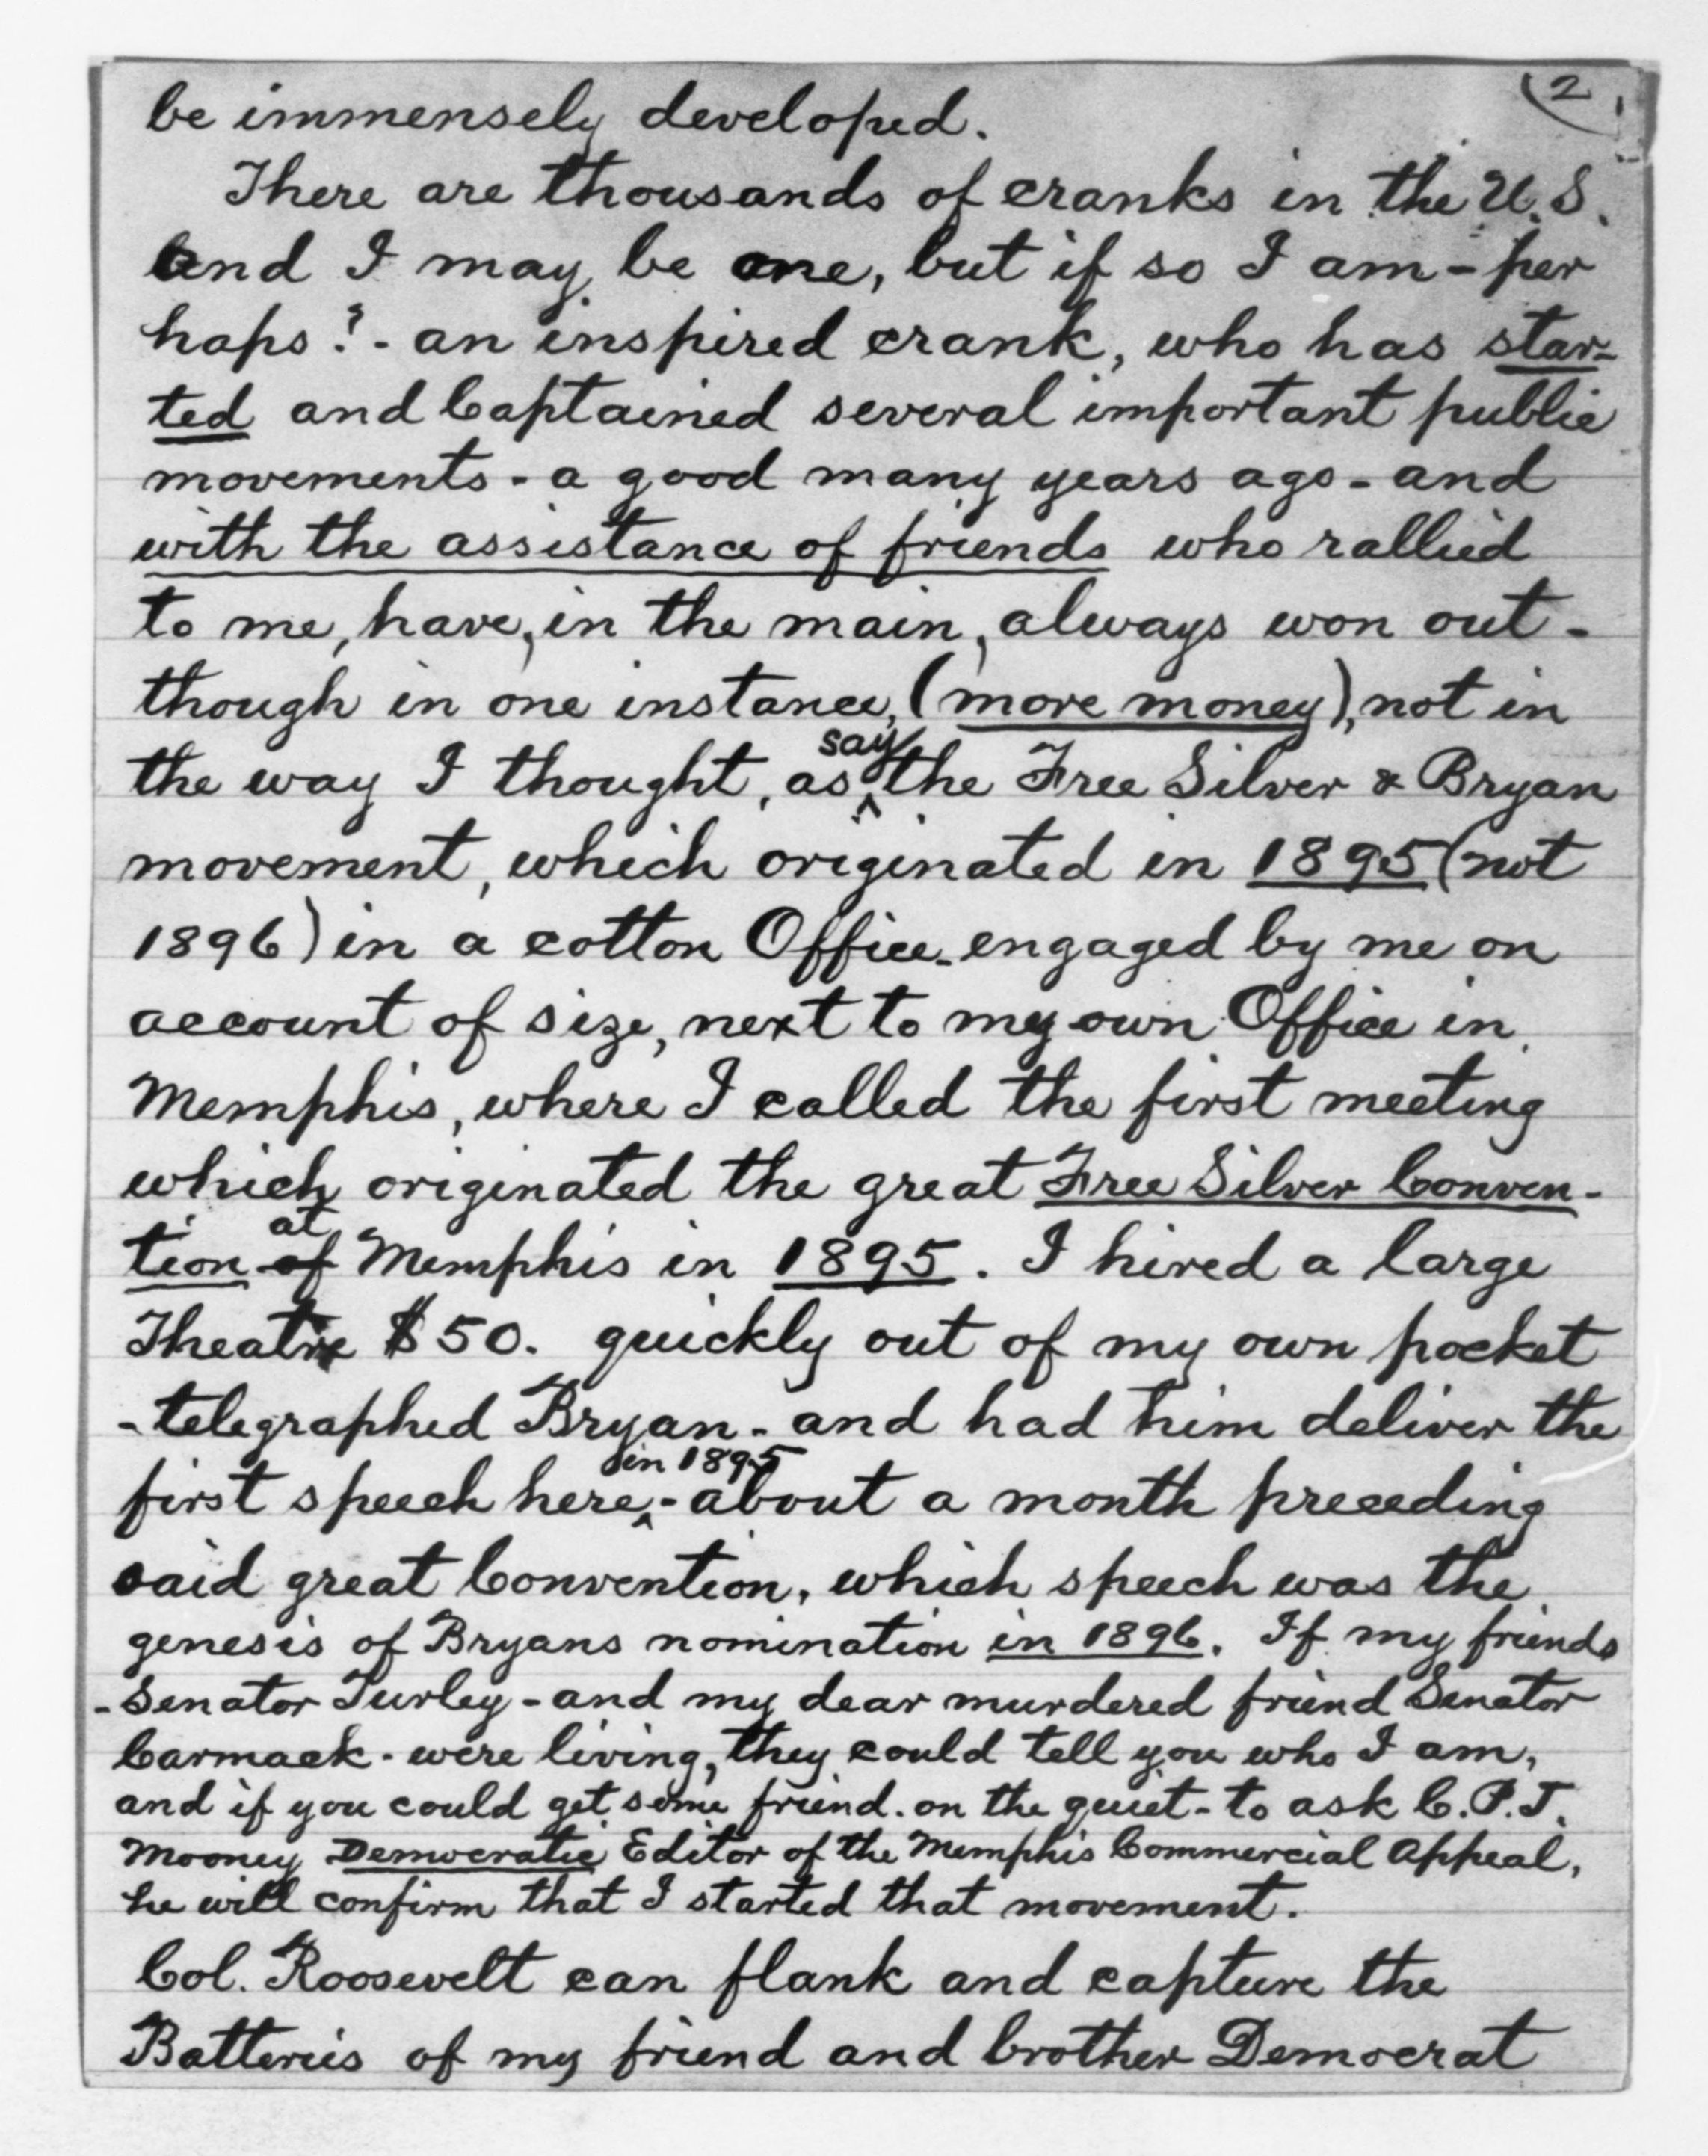 (2
be immensely developed.
There are thousands of cranks in the U.S.
and I may be one, but if so I am - per
haps? - an inspired crank, who has star-
ted and Captained several important public
movements - a good many years ago - and
with the assistance of friends who rallied
to me, have, in the main, always won out -
though in one instance, (more money), not in
the way I thought, as say the Free Silver & Bryan
movement, which originated in 1895 (not
1896) in a cotton Office - engaged by me on
account of size, next to my own Office in
Memphis, where I called the first meeting
which originated the great Free Silver Conven-
tion of at Memphis in 1895. I hired a large
Theatre $50. quickly out of my own pocket
- telegraphed Bryan - and had him deliver the
first speech here, in 1895 - about a month preceding
said great Convention, which speech was the
genesis of Bryans nomination in 1896. If my friends
- Senator Turley - and my dear murdered friend Senator
Carmack - were living, they could tell you who I am,
and if you could get some friend - on the quiet - to ask C.P.J.
Mooney Democratic Editor of the Memphis Commercial Appeal,
he will confirm that I started that movement.
Col. Roosevelt can flank and capture the
Batteries of my friend and brother Democrat